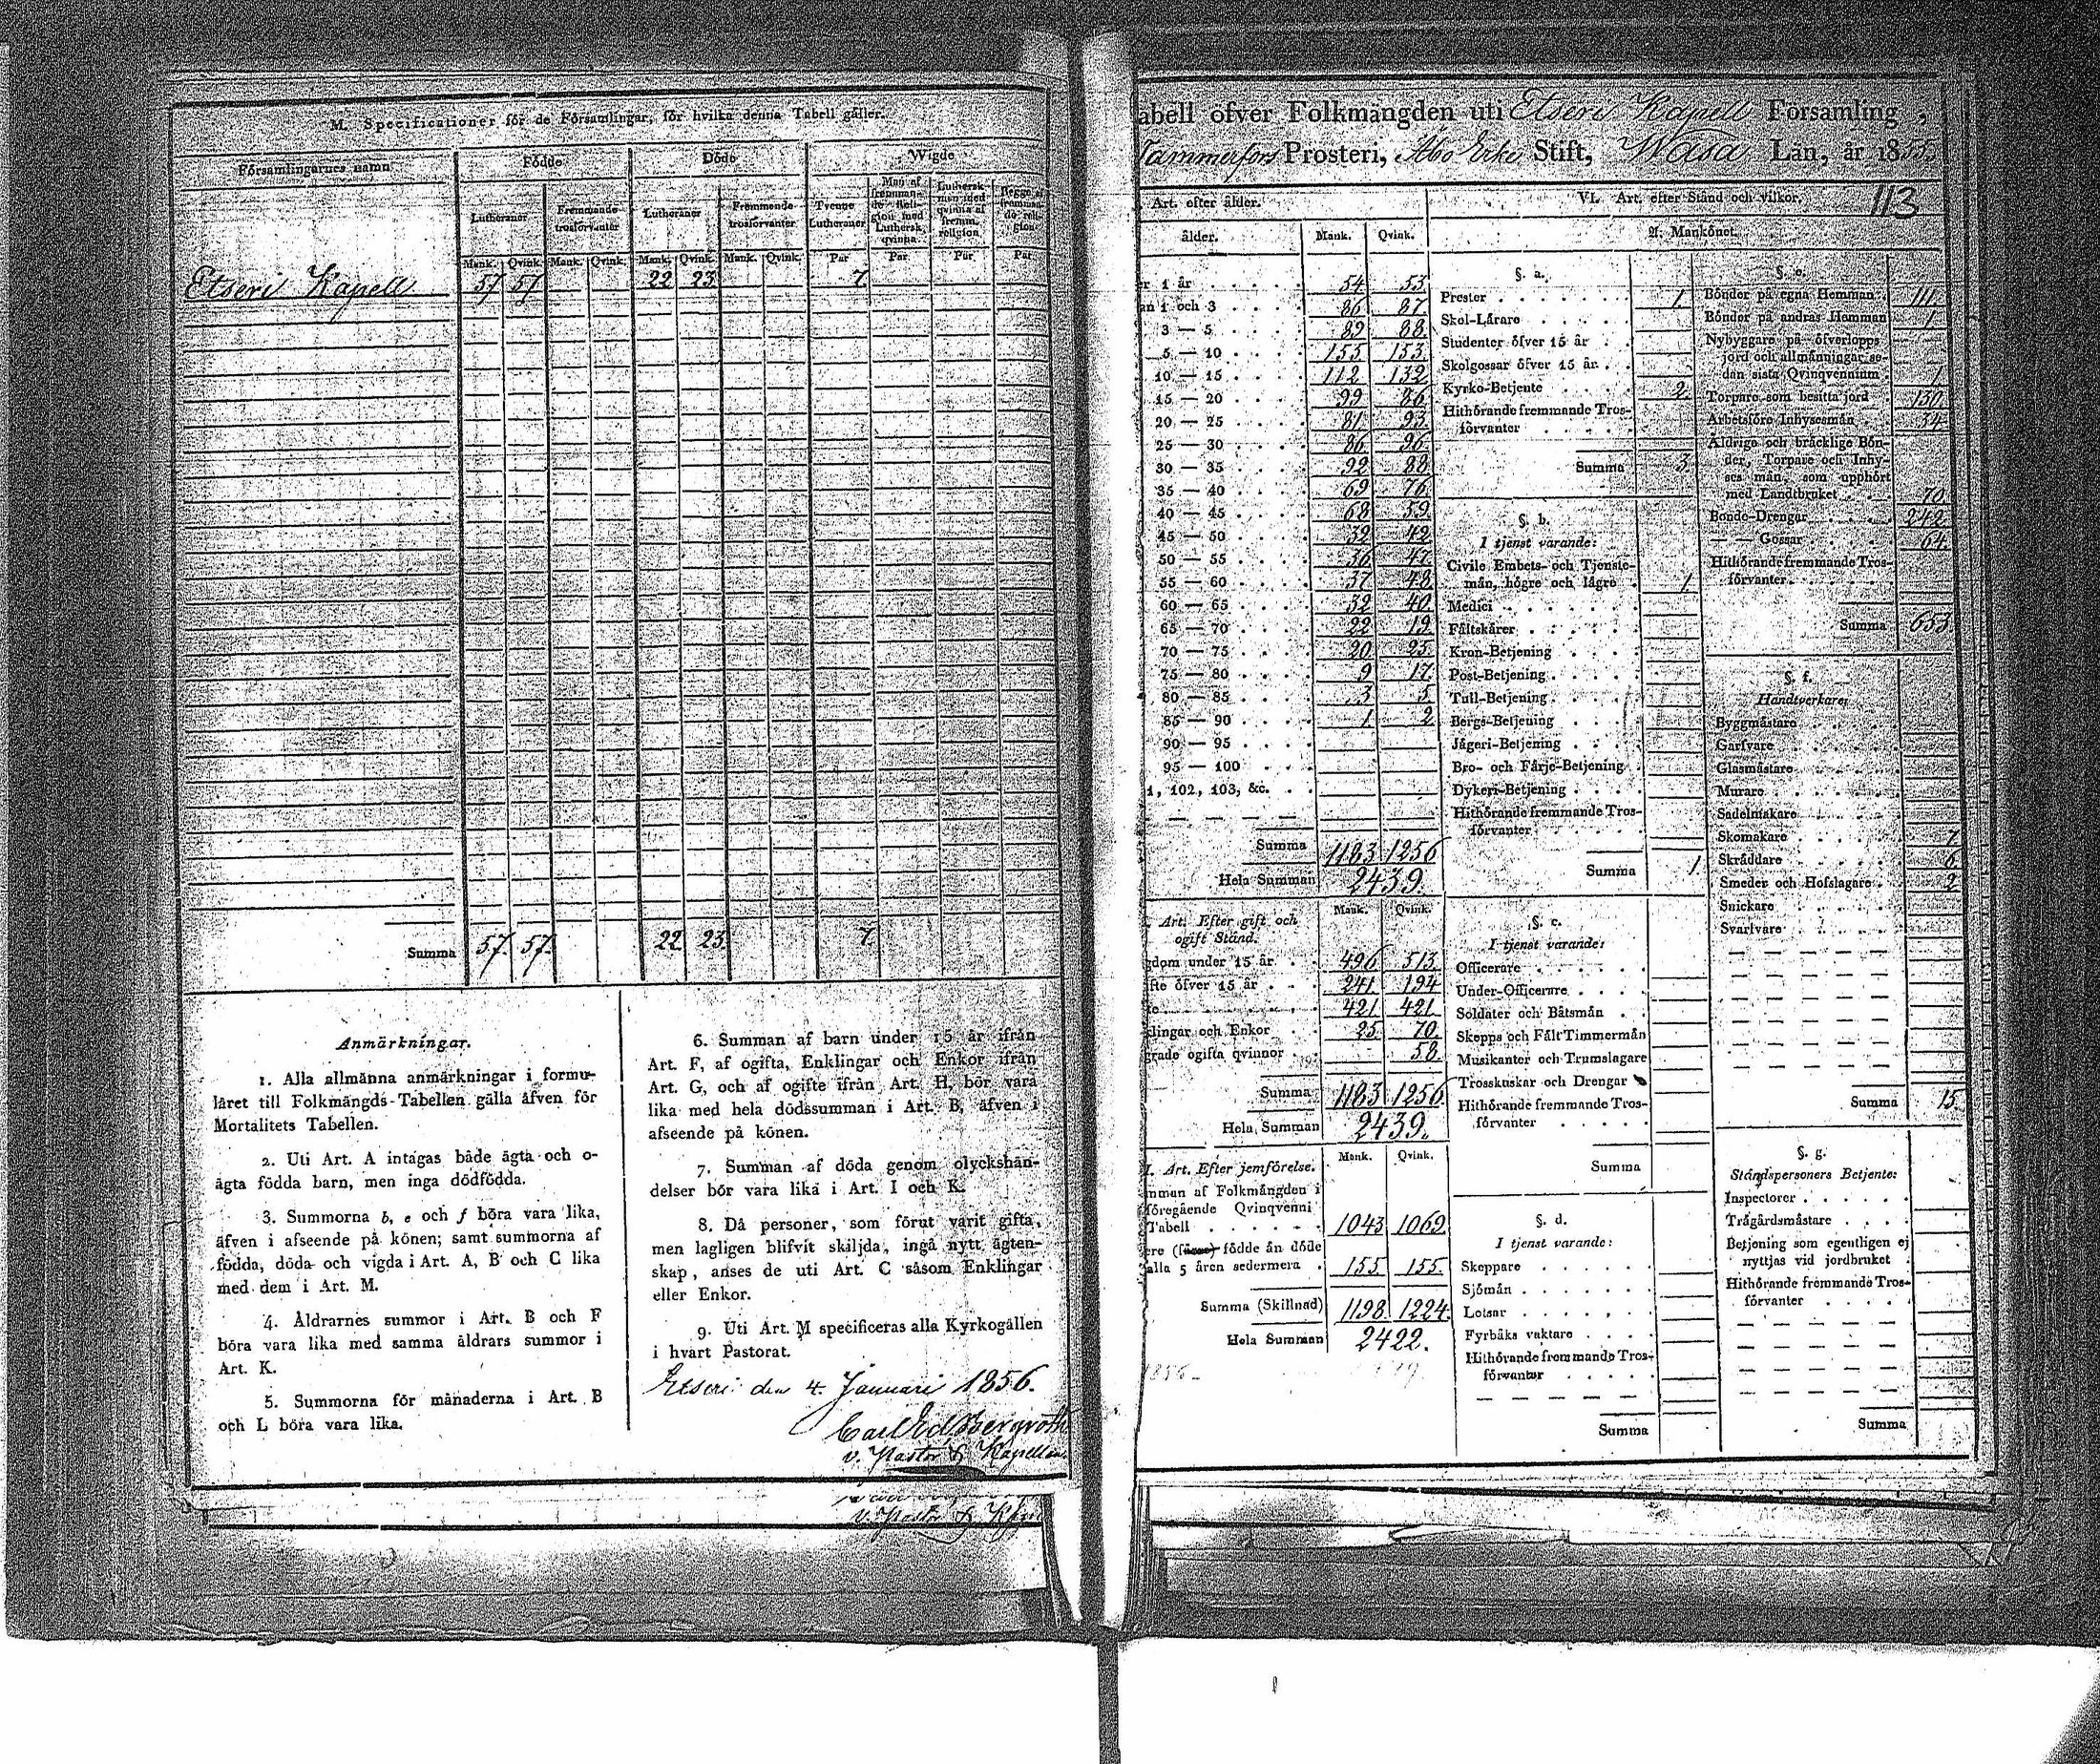 M. Specificationer för de Församlingar, för hvilka denna Tabell gäller.
Församlingarnes namn
Födde
Döde
Wigde
Lutheraner
Fremmende trosförvanter
Lutheraner
Fremmende trosförvanter
Tvenne Lutheraner
Man af fremmande Religion med Luthersk qvinna
Luthersk man med qvinna af fremm. religion
Begge af fremmande religion
Mank. Qvink. Mank. Qvink. Mank. Qvink. Mank. Qvink. Par Par Par Par
Etseri Kapell 57 57 22 23 7.
Summa 57. 57. 22 23 7.
Anmärkningar.
1. Alla allmänna anmärkningar i formu-
läret till Folkmängds-Tabellen gälla äfven för
Mortalitets Tabellen.
2. Uti Art. A intagas både ägta och o-
ägta födda barn, men inga dödfödda.
3. Summorna b, e och f böra vara lika,
äfven i afseende på könen; samt summorna af
födda, döda och vigda i Art. A, B och C lika
med dem i Art. M.
4. Åldrarnes summor i Art. B och F
böra vara lika med samma åldrars summor i
Art. K.
5. Summorna för månaderna i Art. B
och L böra vara lika.
6. Summan af barn under 15 år ifrån
Art. F, af ogifta, Enklingar och Enkor ifrån
Art. G, och af ogifte ifrån Art. H, bör vara
lika med hela dödssumman i Art. B, äfven i
afseende på könen.
7. Summan af döda genom olyckshän-
delser bör vara lika i Art. I och K.
8. Då personer, som förut varit gifta,
men lagligen blifvit skiljda, ingå nytt ägten-
skap, anses de uti Art. C såsom Enklingar
eller Enkor.
9. Uti Art. M specificeras alla Kyrkogällen
i hvart Pastorat.
Etseri den 4. Januari 1856.
Carl Ed. Bergroth
v. Pastor & Kapellan
v. Pastor &
abell öfver Folkmängden uti Etseri Kapell Församling,
Tammerfors Prosteri, Åbo Erke Stift, Wasa Län, år 1855.
113
Art. efter ålder.
ålder. Mank. Qvink.
r 1 år 54 53
n 1 och 3 86 87
3 — 5 89 88
5 — 10 155 153
10 — 15 112 132
15 — 20 99 86
20 — 25 81 93
25 — 30 86 96
30 — 35 92 88
35 — 40 69 76
40 — 45 68 59
45 — 50 32 42
50 — 55 36 47
55 — 60 37 48
60 — 65 32 40
65 — 70 22 19
70 — 75 20 23
75 — 80 9 17
80 — 85 3 5
85 — 90 1 2
90 — 95
95 — 100
1, 102, 103, &c.
Summa 1183 1256
Hela Summan 2439.
Art. Efter gift och
ogift Stånd.
Mank. Qvink.
gdom under 15 år 496 513
fte öfver 15 år 241 194
te 421 421
klingar och Enkor 25 70
grade ogifta qvinnor 58
Summa 1183 1256
Hela Summan 2439.
I. Art. Efter jemförelse. Mank. Qvink.
mman af Folkmängden i
föregående Qvinqvenni
Tabell 1043 1069
ere födde än döde
alla 5 åren sedermera 155 155
Summa (Skillnad) 1198 1224
Hela Summan 2422.
1856
VI. Art. efter Stånd och vilkor.
A. Mankönet.
§. a.
Prester 1.
Skol-Lärare
Studenter öfver 15 år
Skolgossar öfver 15 år
Kyrko-Betjente 2
Hithörande fremmande Tros-
förvanter
Summa 3
§. b.
I tjenst varande:
Civile Embets- och Tjenste-
män, högre och lägre 1.
Medici
Fältskärer
Kron-Betjening
Post-Betjening
Tull-Betjening
Bergs-Betjening
Jägeri-Betjening
Bro- och Färje-Betjening
Dykeri-Betjening
Hithörande fremmande Tros-
förvanter
Summa 1.
§. c.
I tjenst varande:
Officerare
Under-Officerare
Soldater och Båtsmän
Skepps och Fält Timmermän
Musikanter och Trumslagare
Trosskuskar och Drengar
Hithörande fremmande Tros-
förvanter
Summa
§. d.
I tjenst varande:
Skeppare
Sjömän
Lotsar
Fyrbåks vaktare
Hithörande fremmande Tros-
förvanter
Summa
§. e.
Bönder på egna Hemman 111.
Bönder på andras Hemman 1
Nybyggare på öfverlopps
jord och allmänningar se-
dan sista Qvinqvennium 1
Torpare som besitta jord 130
Arbetsföre Inhysesmän 34
Åldrige och bräcklige Bön-
der, Torpare och Inhy-
ses män, som upphört
med Landtbruket 70
Bonde-Drengar 242
— — Gossar 64
Hithörande fremmande Tros-
förvanter
Summa 653
§. f.
Handtverkare:
Byggmästare
Garfvare
Glasmästare
Murare
Sadelmakare
Skomakare 7
Skräddare 6
Smeder och Hofslagare 2
Snickare
Svarfvare
Summa 15
§. g.
Ståndspersoners Betjente:
Inspectorer
Trägårdsmästare
Betjening som egentligen ej
nyttjas vid jordbruket
Hithörande fremmande Tros-
förvanter
Summa